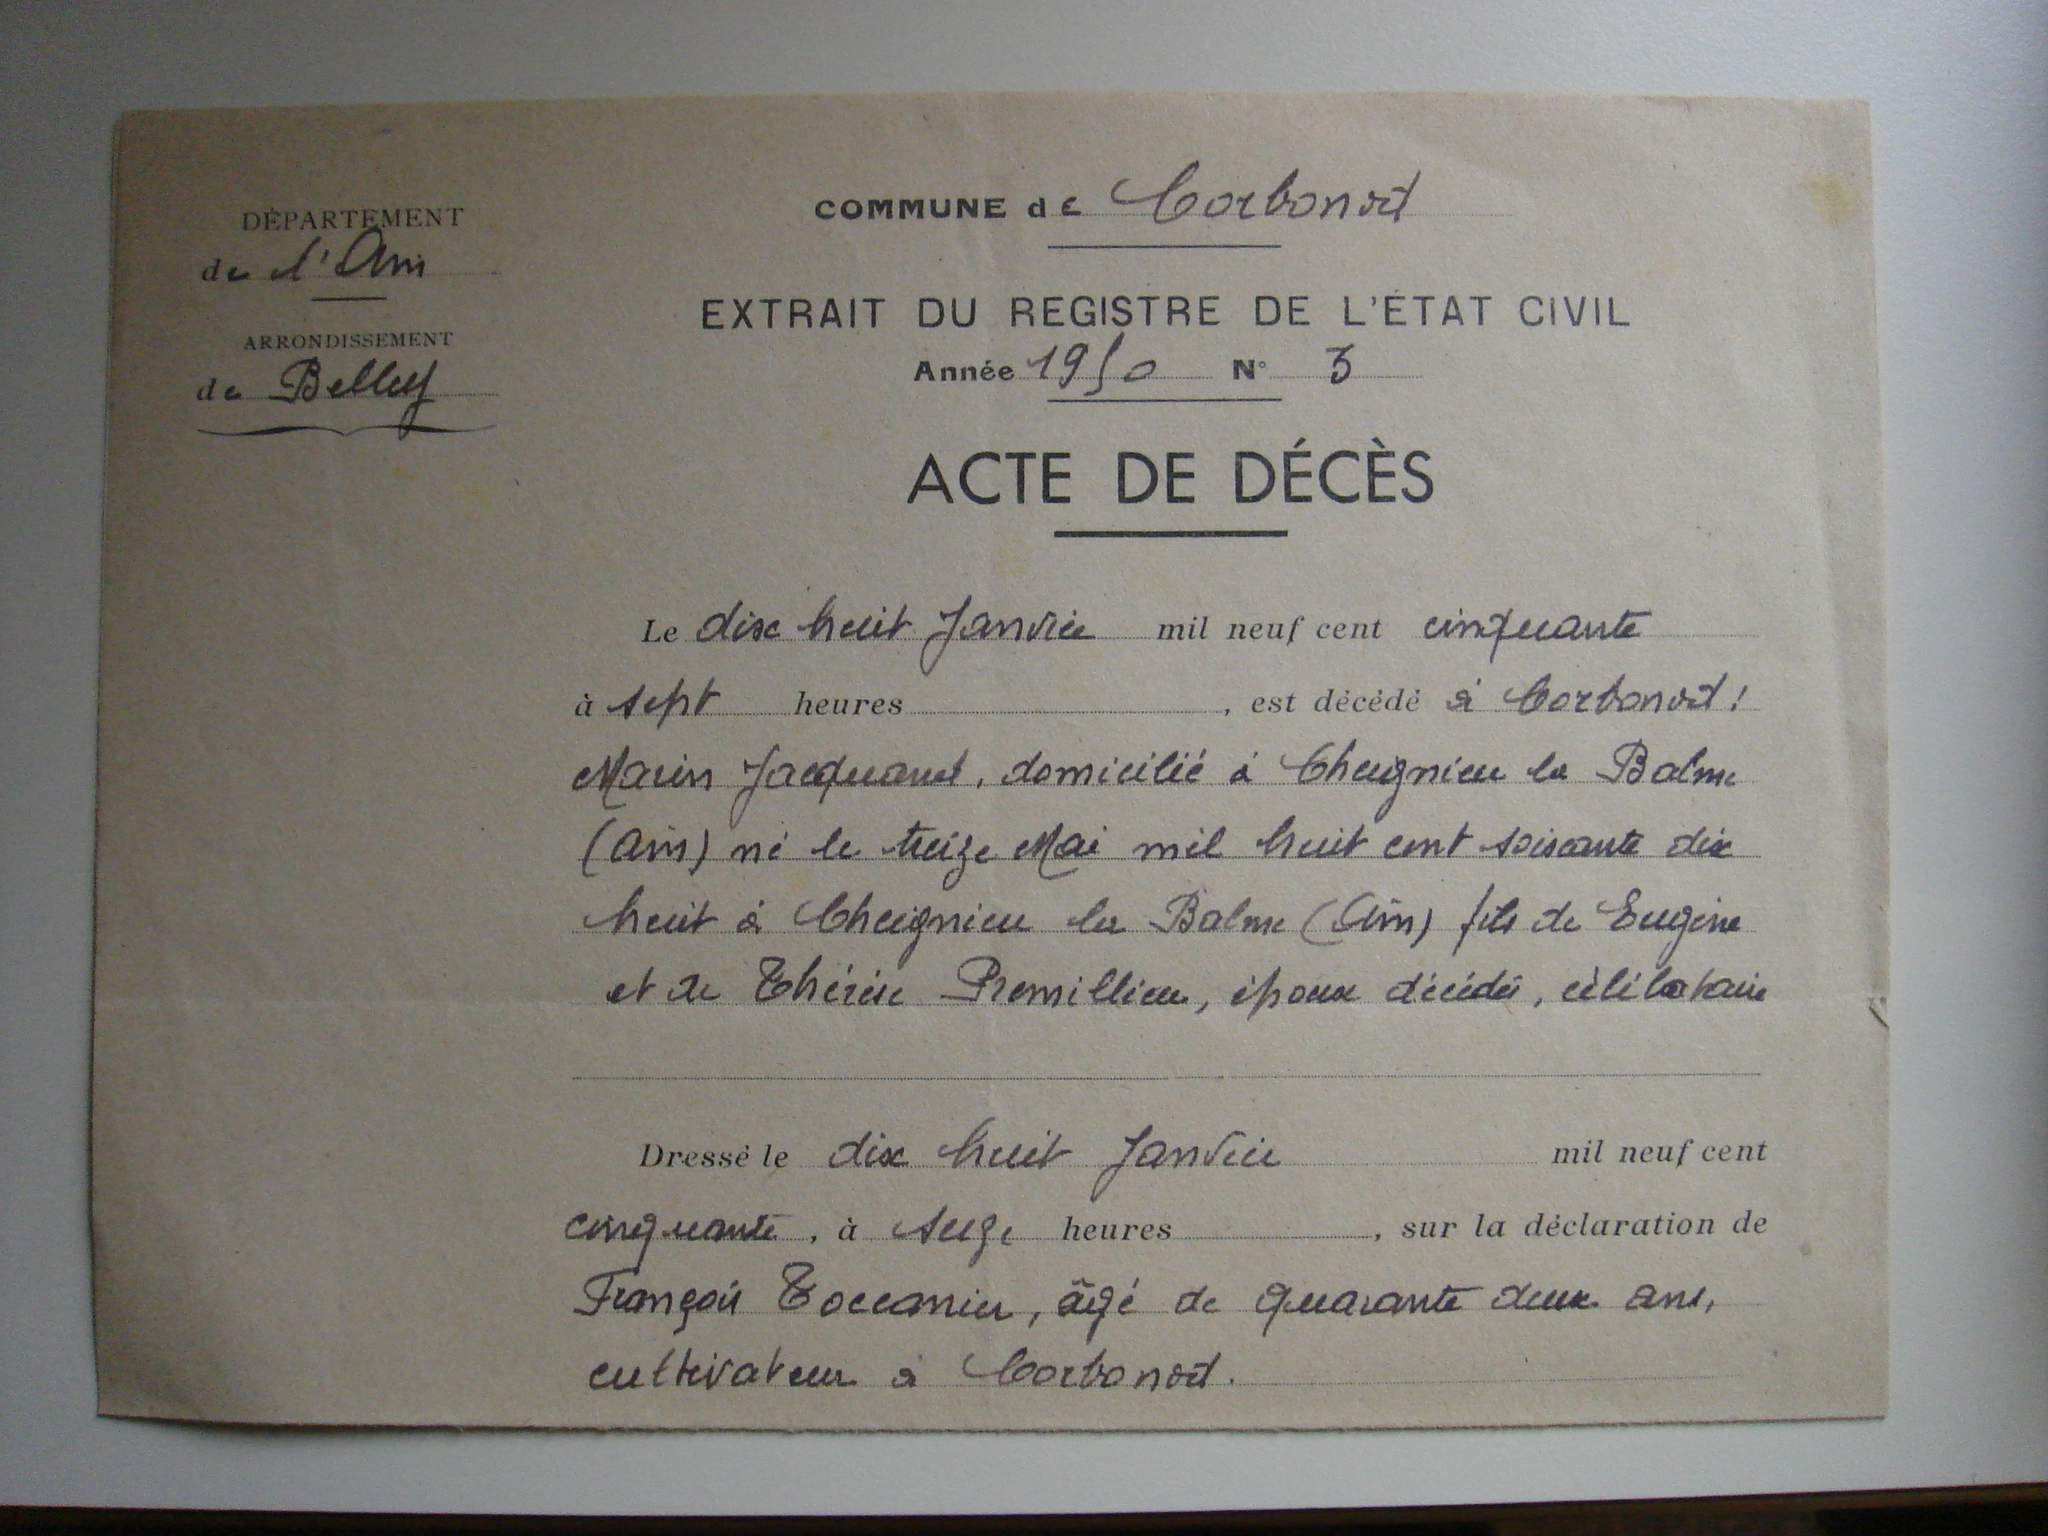 DÉPARTEMENT
de l'Ain
ARRONDISSEMENT
de Belley
COMMUNE de Corbonod
EXTRAIT DU REGISTRE DE L'ÉTAT CIVIL
Année 1950 N° 3
ACTE DE DÉCÈS
Le dix huit Janvier mil neuf cent cinquante
à sept heures , est décédé à Corbonod :
Marin Jacquand, domicilié à Cheignieu la Balme
(Ain) né le treize Mai mil huit cent soixante dix
huit à Cheignieu la Balme (Ain) fils de Eugène
et de Thérèse Premillieu, époux décédés, célibataire
Dressé le dix huit Janvier mil neuf cent
cinquante, à seize heures , sur la déclaration de
François Toccanier, âgé de quarante deux ans,
cultivateur à Corbonod.